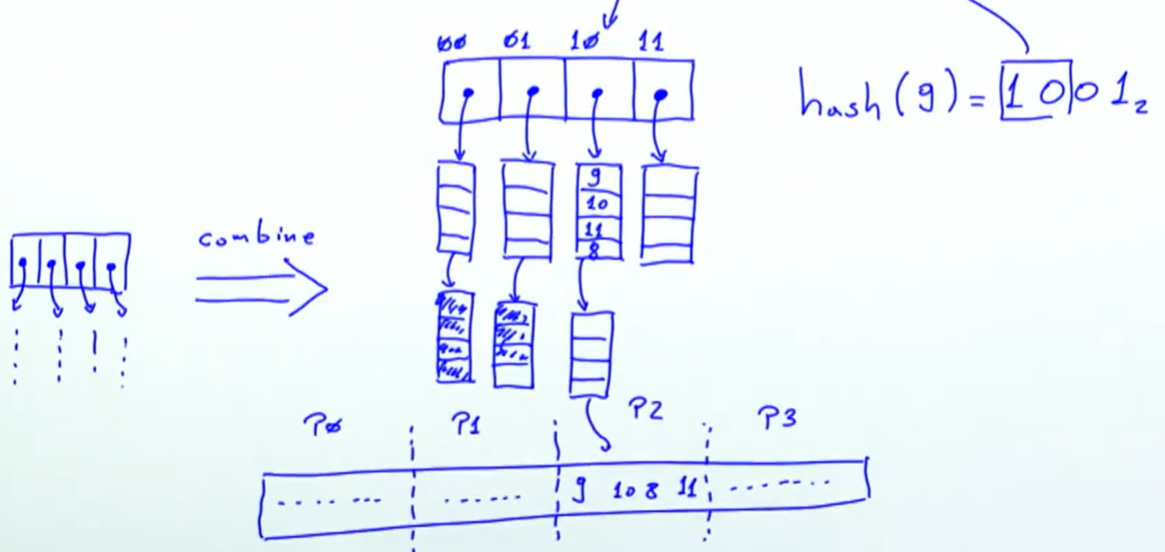 00 01 10 11
hash(9) = 1 0 0 1₂
9
10
11
8
combine
P0 P1 P2 P3
........ ....... 9 10 8 11 ........